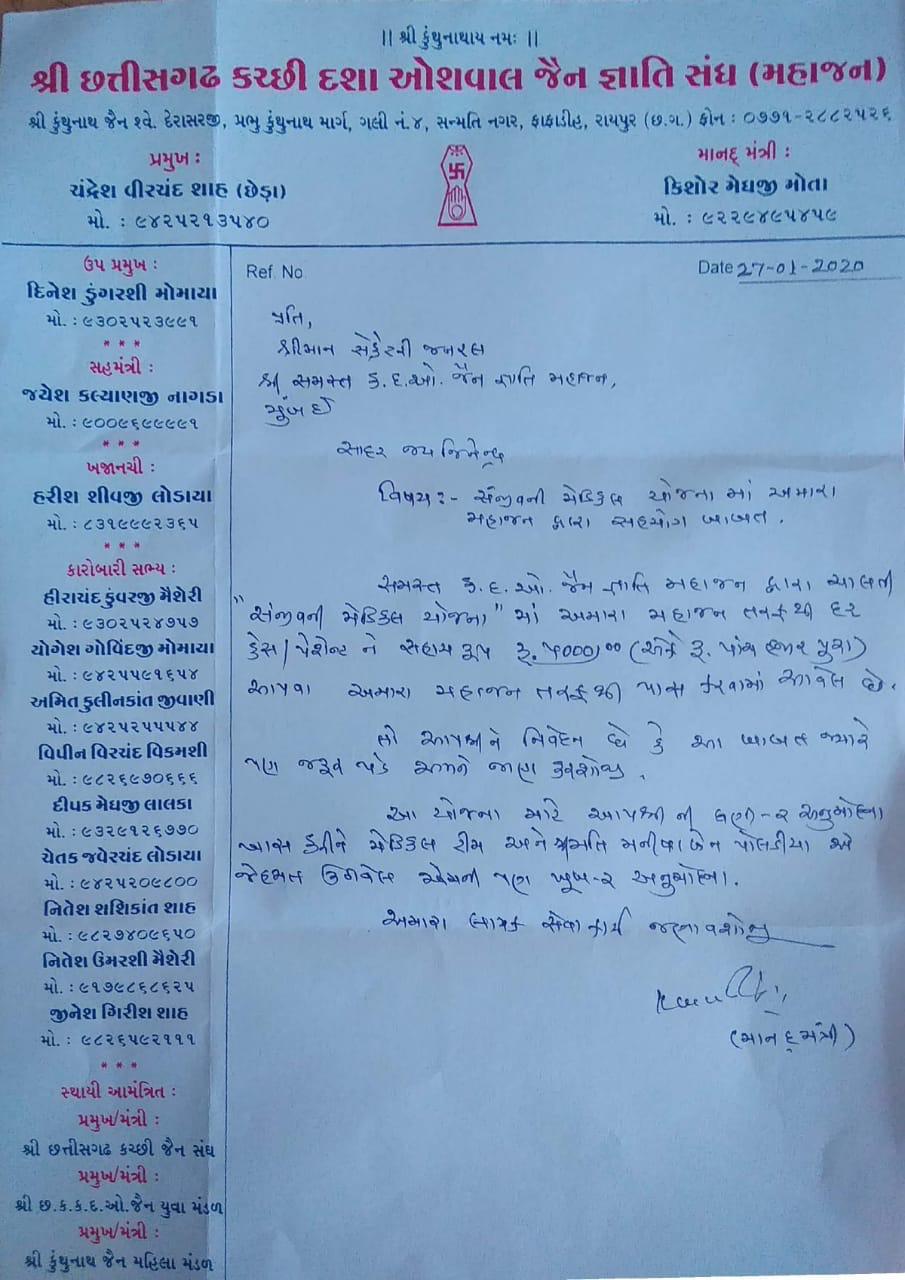 || શ્રી કુંથુનાથાય નમઃ ||
શ્રી છત્તીસગઢ કચ્છી દશા ઓશવાલ જૈન જ્ઞાતિ સંઘ (મહાજન)
શ્રી કુંથુનાથ જૈન શ્વે. દેરાસરજી, પ્રભુ કુંથુનાથ માર્ગ, ગલી નં.૪, સન્મતિ નગર, ફાફાડીહ, રાયપુર (છ.ગ.) ફોન : ૦૭૭૧-૨૮૮૨૫૨૬
પ્રમુખ :
ચંદ્રેશ વીરચંદ શાહ (છેડા)
મો. : ૯૪૨૫૨૧૩૫૪૦
માનદ્ મંત્રી :
કિશોર મેઘજી મોતા
મો. : ૯૨૨૯૪૯૫૪૫૯
ઉપ પ્રમુખ :
દિનેશ ડુંગરશી મોમાયા
મો. : ૯૩૦૨૫૨૩૯૯૧
* * *
સહમંત્રી :
જયેશ કલ્યાણજી નાગડા
મો. : ૯૦૦૯૬૯૯૯૯૧
* * *
ખજાનચી :
હરીશ શીવજી લોડાયા
મો. : ૮૩૧૯૯૯૨૩૬૫
* * *
કારોબારી સભ્ય :
હીરાચંદ કુંવરજી મૈશેરી
મો. : ૯૩૦૨૫૨૪૭૫૭
યોગેશ ગોવિંદજી મોમાયા
મો. : ૯૪૨૫૫૧૬૫૪
અમિત કુલીનકાંત જીવાણી
મો. : ૯૪૨૫૨૫૫૫૪૪
વિપીન વિરચંદ વિકમશી
મો. : ૯૮૨૬૯૭૦૬૬૬
દીપક મેઘજી લાલકા
મો. : ૯૩૨૯૧૨૬૭૭૦
ચેતક જવેરચંદ લોડાયા
મો. : ૯૪૨૫૨૦૯૮૦૦
નિતેશ શશિકાંત શાહ
મો. : ૯૮૨૭૪૦૯૬૫૦
નિતેશ ઉમરશી મૈશેરી
મો. : ૯૧૭૯૮૬૮૬૨૫
જીનેશ ગિરીશ શાહ
મો. : ૯૮૨૬૫૯૨૧૧૧
* * *
સ્થાયી આમંત્રિત :
પ્રમુખ/મંત્રી :
શ્રી છત્તીસગઢ કચ્છી જૈન સંઘ
પ્રમુખ/મંત્રી :
શ્રી છ.ક.ક.દ.ઓ.જૈન યુવા મંડળ
પ્રમુખ/મંત્રી :
શ્રી કુંથુનાથ જૈન મહિલા મંડળ
Ref. No.
Date 27-01-2020
પ્રતિ,
શ્રીમાન સેક્રેટરી જનરલ
શ્રી સમસ્ત ક.દ.ઓ. જૈન જ્ઞાતિ મહાજન,
મુંબઈ
સાદર જય જિનેન્દ્ર
વિષય :- સંજીવની મેડિકલ યોજના માં અમારા
મહાજન દ્વારા સહયોગ બાબત.
સમસ્ત ક.દ.ઓ. જૈન જ્ઞાતિ મહાજન દ્વારા ચાલતી
"સંજીવની મેડિકલ યોજના" માં અમારા મહાજન તરફથી દર
કેસ/પેશેન્ટ ને સહાય રૂપ રૂ. ૫૦૦૦/૦૦ (અંકે રૂ. પાંચ હજાર પુરા)
આપવા અમારા મહાજન તરફથી પાસ કરવામાં આવેલ છે.
તો આપશ્રીને નિવેદન છે કે આ બાબત જ્યારે
પણ જરૂર પડે અમને જાણ કરશોજી.
આ યોજના માટે આપશ્રી ની ઘણી-૨ અનુમોદના
ખાસ કરીને મેડિકલ ટીમ અને શ્રીમતિ મનીષાબેન પોલડીયા એ
જેહમત ઉઠાવેલ એમની પણ ખૂબ-૨ અનુમોદના.
અમારા લાયક સેવા કાર્ય જણાવશોજી
(માનદ્ મંત્રી)